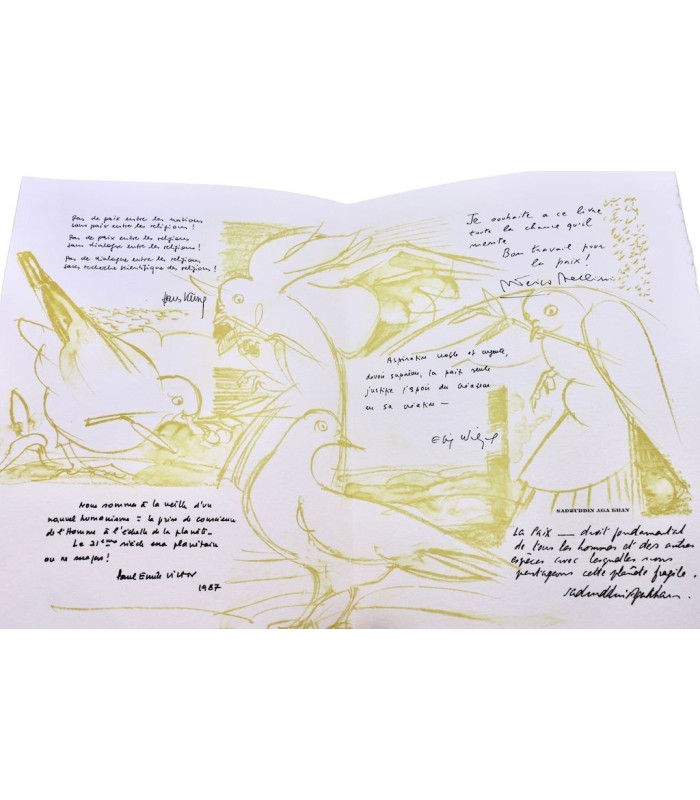 Pas de paix entre les nations
sans paix entre les religions !
Pas de paix entre les religions
sans dialogue entre les religions !
Pas de dialogue entre les religions
sans recherche scientifique des religions !
Hans Küng
Je souhaite a ce livre
toute la chance qu'il
merite
Bon travail pour
la paix !
Aspiration noble et
devoir suprême, la paix seule
justifie l'espoir du Créateur
en sa création —
Elie Wiesel
Nous sommes à la veille d'un
nouvel humanisme : la prise de conscience
de l'Homme à l'échelle de la planète.
Le 21ème siècle sera planétaire
ou ne sera pas !
Paul Emile Victor
1987
SADRUDDIN AGA KHAN
La Paix — droit fondamental
de tous les hommes et des autres
espèces avec lesquelles nous
partageons cette planète fragile.
Sadruddin Aga Khan